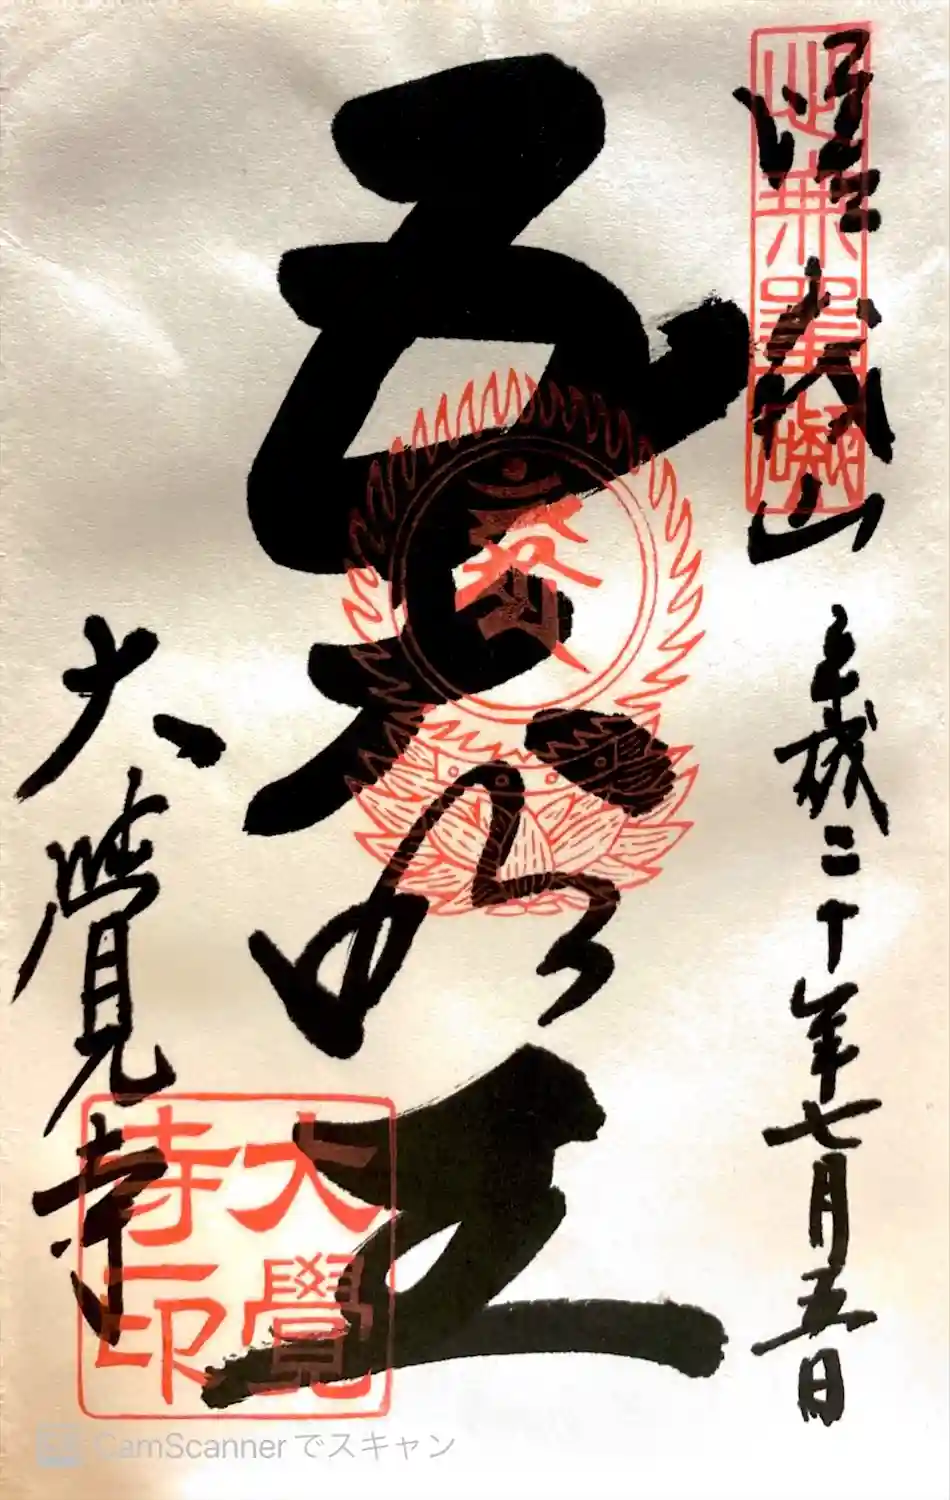 心無罣礙
嵯峨山 平成二十年七月五日
五大明王
大覺寺
大覺
寺印
CamScannerでスキャン